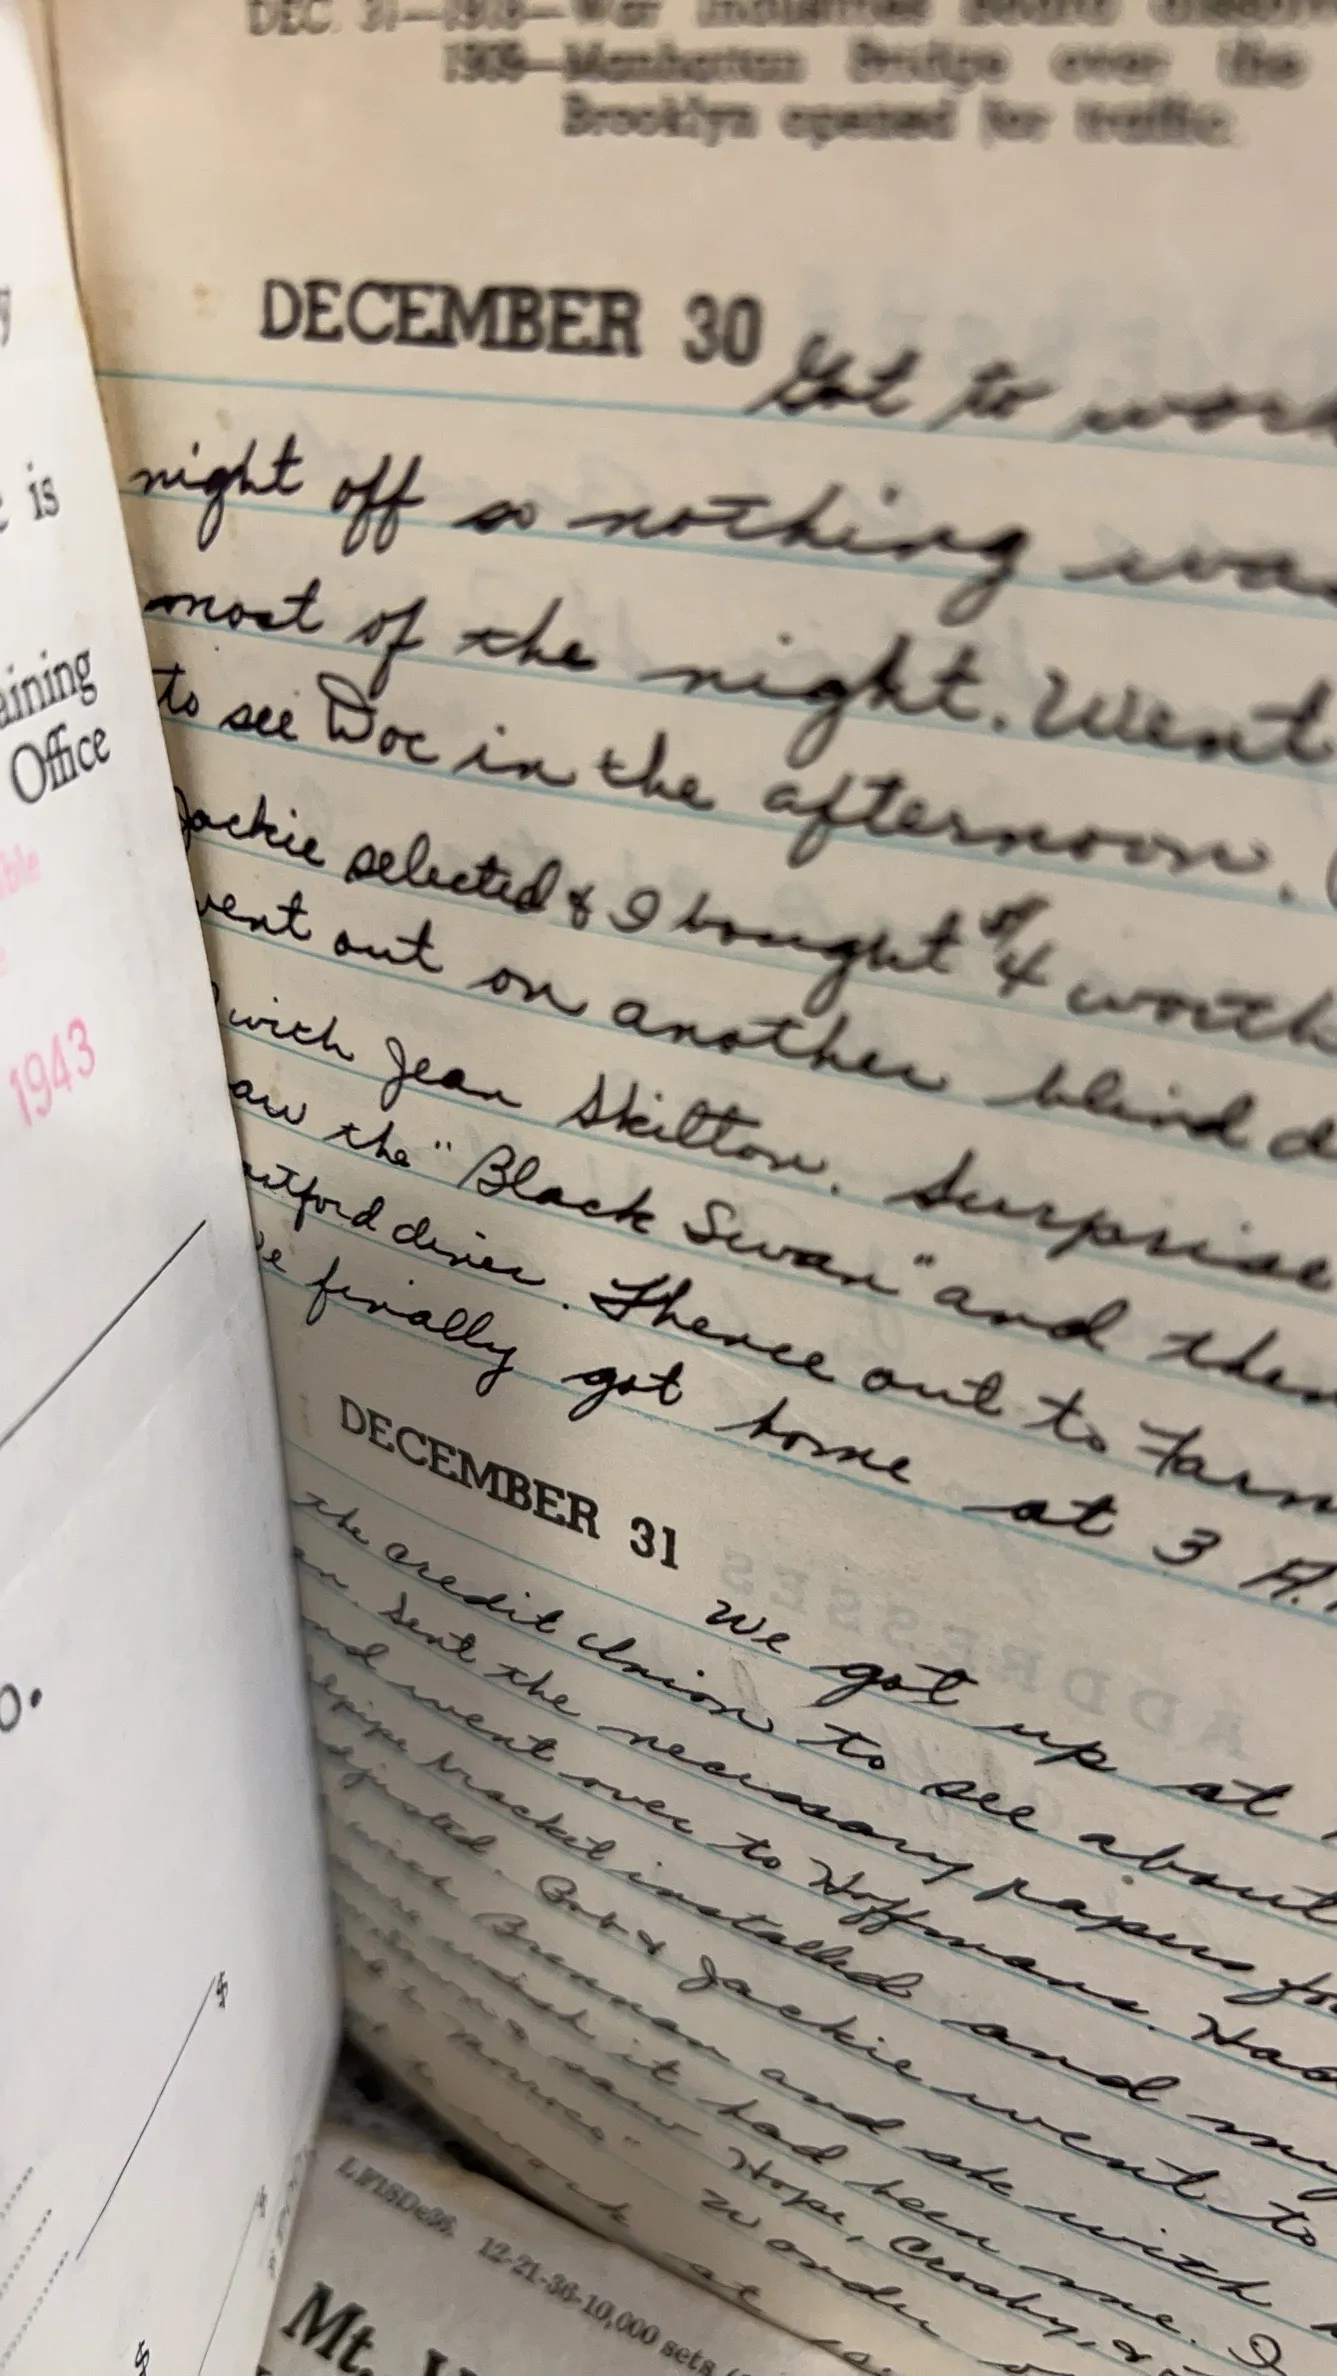 DEC. 31—1918—War Industries Board
1909—Manhattan Bridge over the
Brooklyn opened for traffic.
DECEMBER 30
Got to work
night off so nothing was
most of the night. Went
to see Doc in the afternoon.
Jackie selected & I bought worth
went out on another blind d
with Jean Skilton. Surprise
aw the "Black Swan" and then
artford diner. Thence out to Farm
we finally got home at 3 A.
DECEMBER 31
We got up at
the credit Union to see about
an. Sent the necessary papers for
nd went over to Hoffmans. Had
pipe bracket installed and my
adjusted. Bob & Jackie went to
with Brennan and sk with
wish it had been me. I
saw Hope, Crosby, &
Morocco" Wonder
work at
y
is
aining
Office
ble
e
1943
o.
$
$
$
LF18De36. 12-21-36-10,000 sets
Mt.